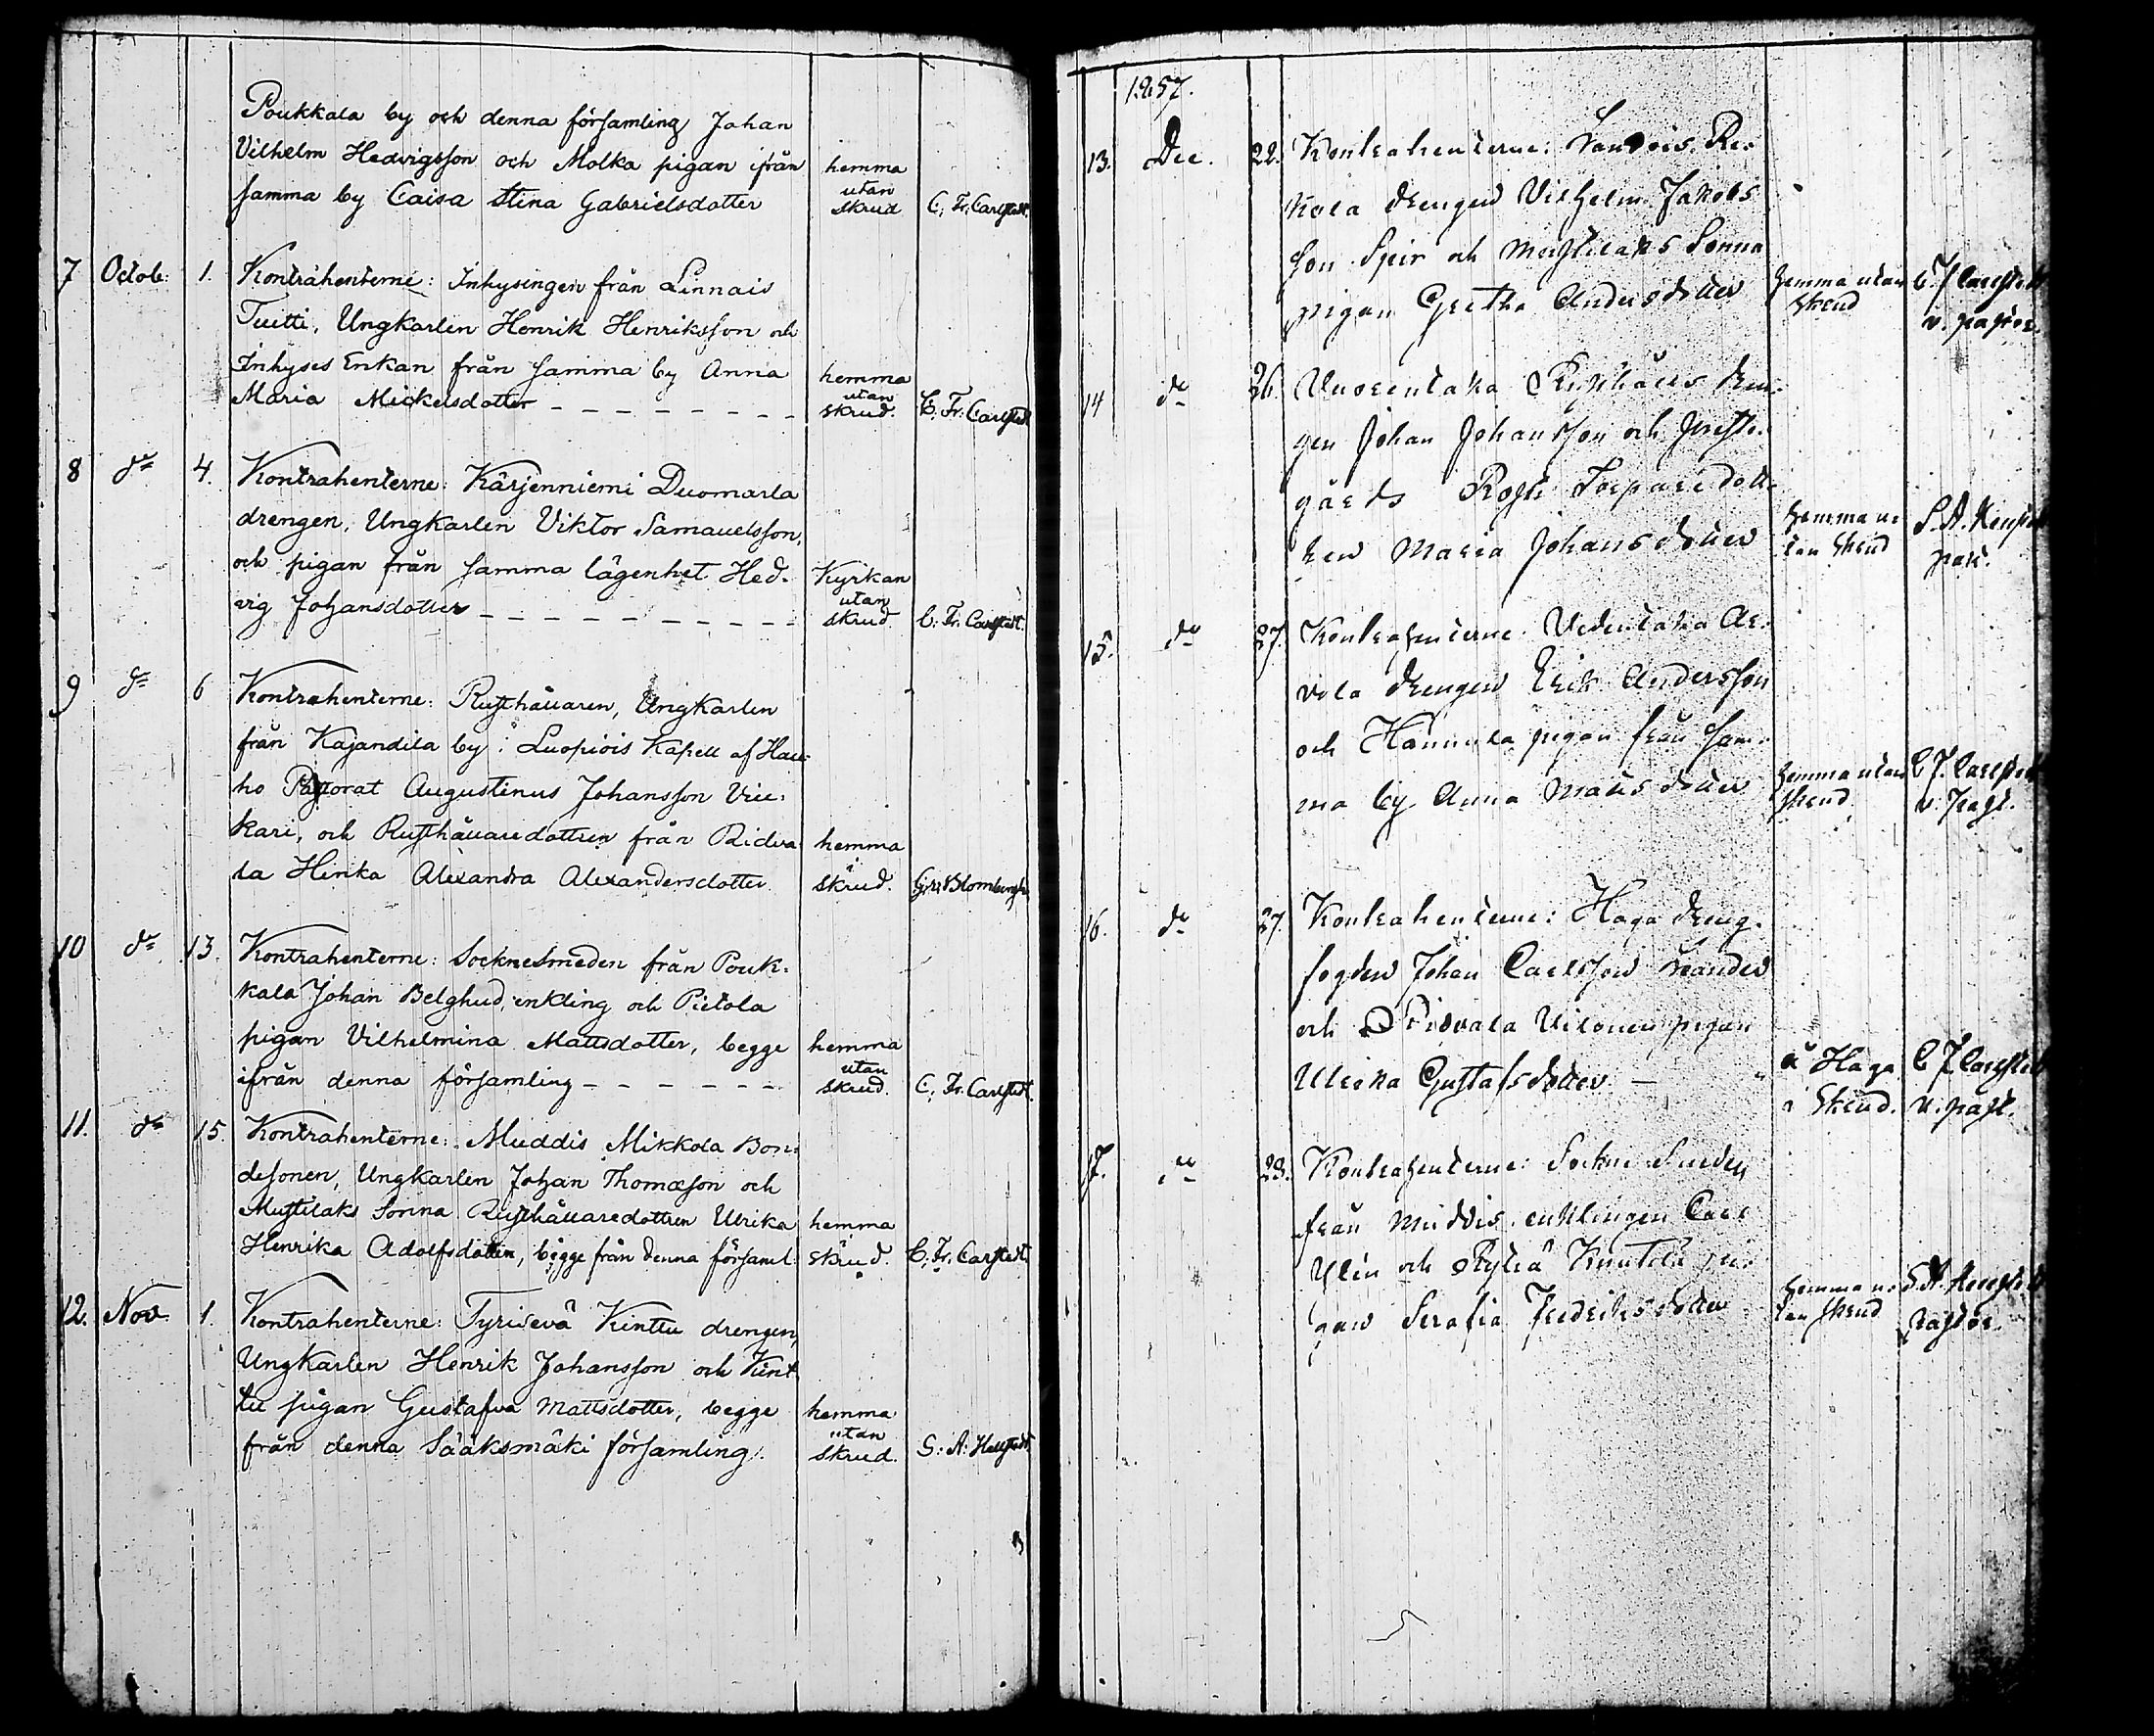 Poukkala by och denna församling Johan
Vilhelm Hedvigsson och Molka pigan ifrån hemma
samma by Caisa Stina Gabrielsdotter utan skrud C, Fr, Carlstedt.
7 Octob: 1. Kontrahenterne: Inhysingen från Linnais
Tuitti, Ungkarlen Henrik Henriksson och
Inhyses Enkan från samma by Anna hemma
Maria Mickelsdotter – – – – – – – – utan skrud. C. Fr. Carlstedt
8 do 4. Kontrahenterne: Kärjenniemi Duomarla
drengen, Ungkarlen Viktor Samauelsson,
och pigan från samma lägenhet Hed- Kyrkan
vig Johansdotter – – – – – – – – – – utan skrud C: Fr. Carlstedt.
9 do 6 Kontrahenterne: Rusthållaren, Ungkarlen
från Kajandila by i Luopiois Kapell af Hau-
ho Pastorat Augustinus Johansson
kari, och Rusthållaredottren från Ridva- hemma
la Hinka Alexandra Alexandersdotter i skrud. Blombergh
10 do 13. Kontrahenterne: Socknesmeden från Pouk-
kala Johan Belghud, enkling och Pietola
pigan Vilhelmina Mattsdotter, begge hemma
ifrån denna församling – – – – – – utan skrud. C, Fr. Carlstedt.
11. do 15. Kontrahenterne: Muddis Mikkola Bon-
desonen, Ungkarlen Johan Thomasson och
Mustilaks Sonna Rusthållaredottren Ulrika hemma
Henrika Adolfsdotter, begge från denna församl: i skrud. C, Fr. Carlstedt.
12. Nov. 1. Kontrahenterne: Tyrisevä Kinttu drengen,
Ungkarlen Henrik Johansson och Kint
tu pigan Gustafva Mattsdotter, begge hemma
från denna Sääksmäki församling. utan skrud. S: A: Hellstedt
1857.
13. Dec. 22. Kontrahenterne:
kola drengen Vilhelm Jakobs
son Speir och Mustilaks Sonna hemma utan C. F Carlstedt
pigan Gretha Andersdotter skrud v. pastor.
14 do 26. Vuorentaka Rusthålls dren-
gen Johan Johansson och Prest-
gårds Torparedott- hemma u-
ren Maria Johansdotter tan skrud past.
15. do 27. Kontrahenterne: Vedentaka Ar-
vola drengen Erik Andersson
och Hannula pigan från sam- hemma utan C F. Carlstedt
ma by Anna Mattsdotter skrud. v. Past.
16. do 27. Kontrahenterne: Haga dreng-
fogden Johan Carlsson
och Ridvala pigan å Haga C F Carlstedt
Ulrika Gustafsdotter – i skrud. v. past.
17. do 29. Kontrahenterne: Sockne Smeden
från Muddis, enklingen Carl
Ulin och Knutila pi- hemma u-
gan Serafia Fredriksdotter tan skrud Pastor.